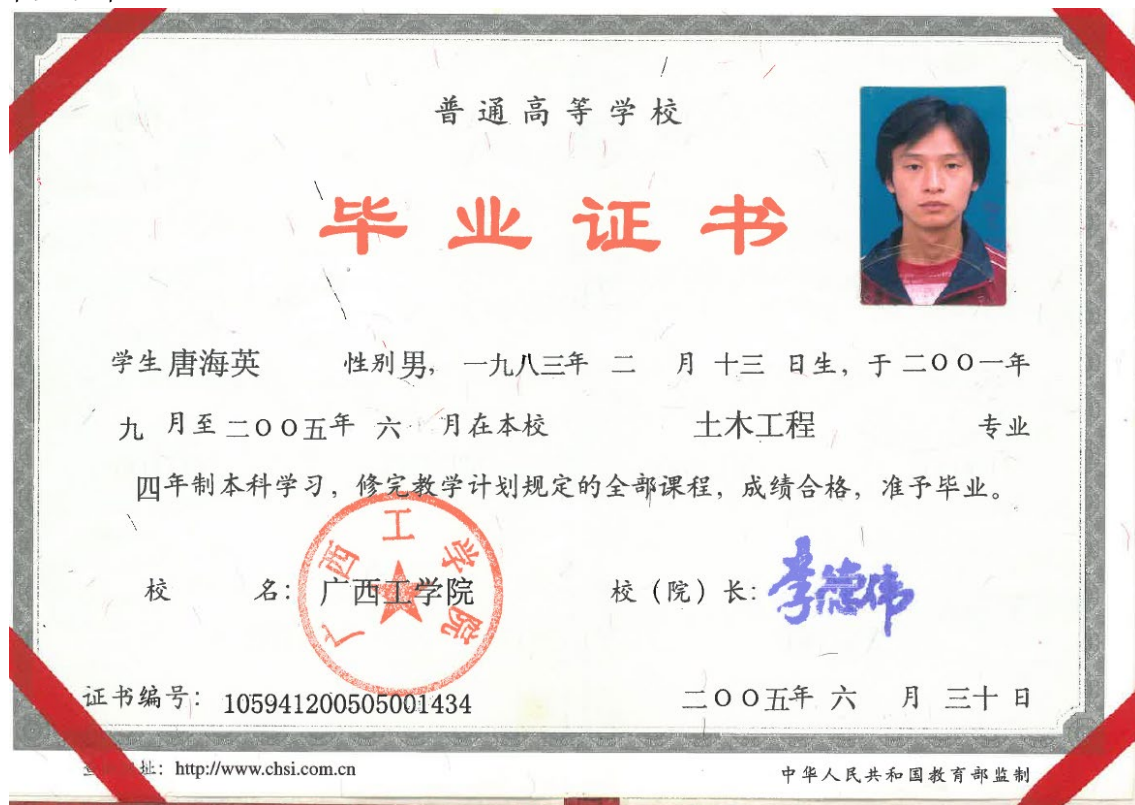 普通高等学校
毕业证书
学生 唐海英 性别 男, 一九八三年 二 月 十三 日生, 于 二〇〇一年
九 月至 二〇〇五年 六 月在本校 土木工程 专业
四年制本科学习, 修完教学计划规定的全部课程, 成绩合格, 准予毕业。
广西工学院
校 名: 广西工学院 校 (院) 长: 李德伟
证书编号: 105941200505001434 二〇〇五年 六 月 三十 日
址: http://www.chsi.com.cn 中华人民共和国教育部监制